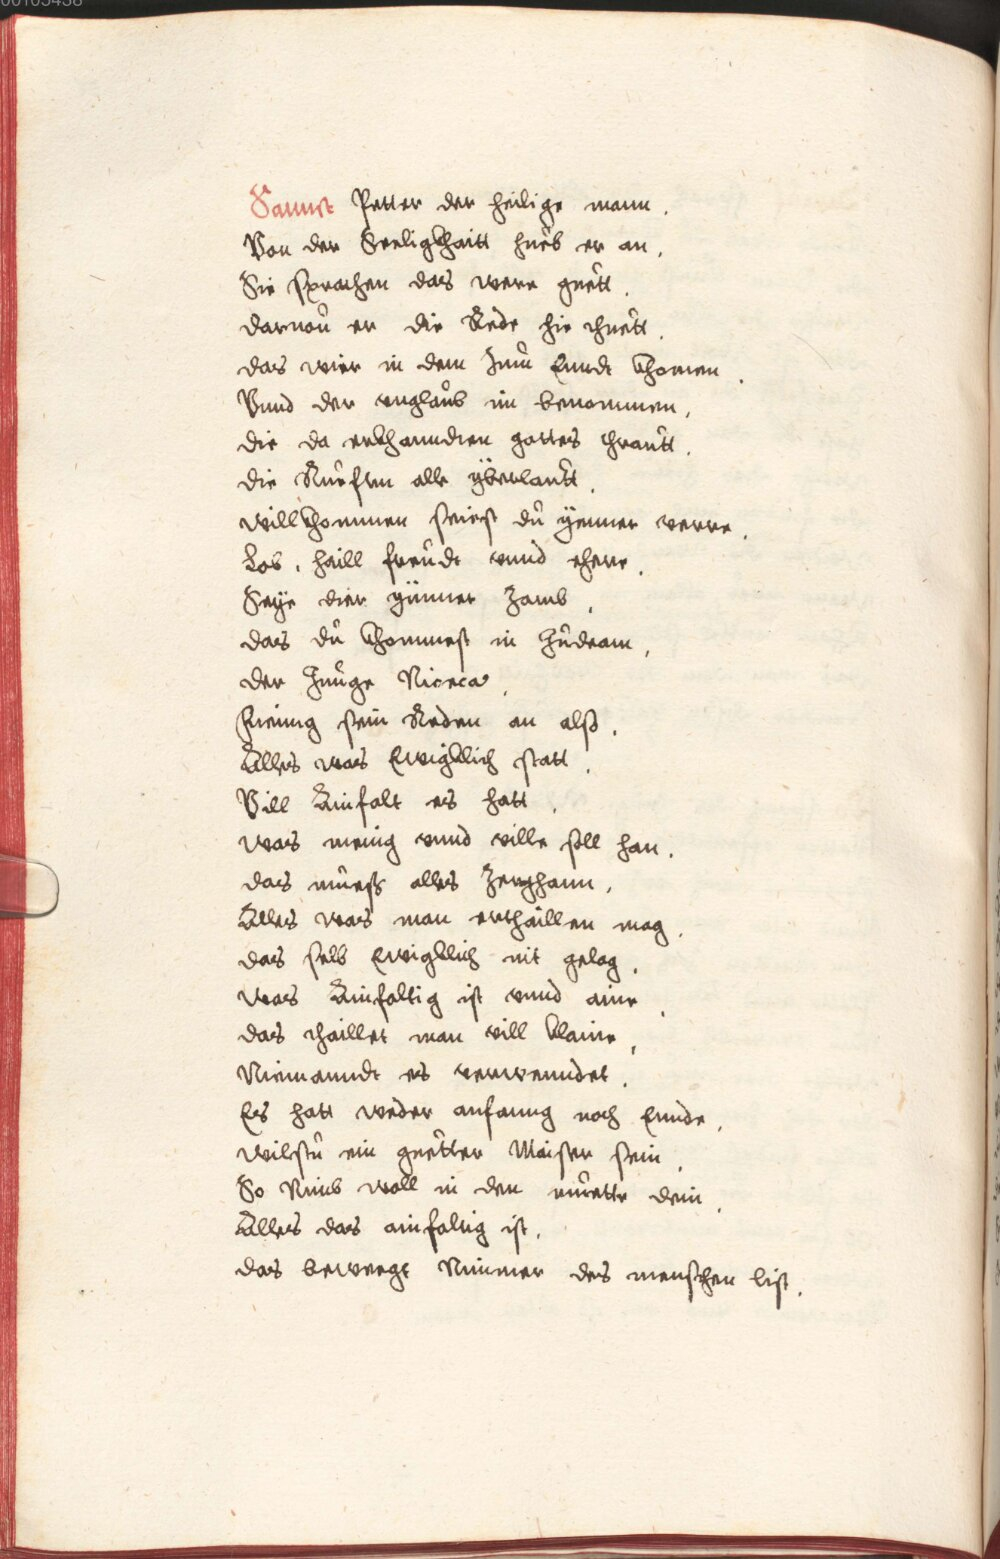 Sannct Petter der heilige mann.
Von der Seeligkhaitt hueb er an.
Sie sprachen das were guett.
darnou er die Rede hie thuett.
das wier in dem Inn Enndt khomen.
Vnnd der vnglaub im benommen.
die da erkhanndten gottes thrautt.
die Rueffen alle yberlautt.
willkhommen seiest du ymmer verre.
Lob. haill freudt vnnd eherr.
Seye dier ymmer zamb.
das du khommest in
der Junge Niceca.
Fieng sein Reden an alss.
Alles was Ewigklich statt.
Vill Ainfalt es hatt.
was menig vnnd ville soll han.
das muess alles Zerghann.
Alles was man erthaillen mag.
das selb Ewigklich nit gelag.
was Ainfaltig ist vnnd aine.
das thaillet man vill klaine.
Niemanndt es verwenndet.
Es hatt weder anfanng noch Ennde.
wilstu ein guetter Maister sein.
So Nimb woll in den muette dein.
Alles das ainfaltig ist.
das bewegt Nimmer des menschen list.